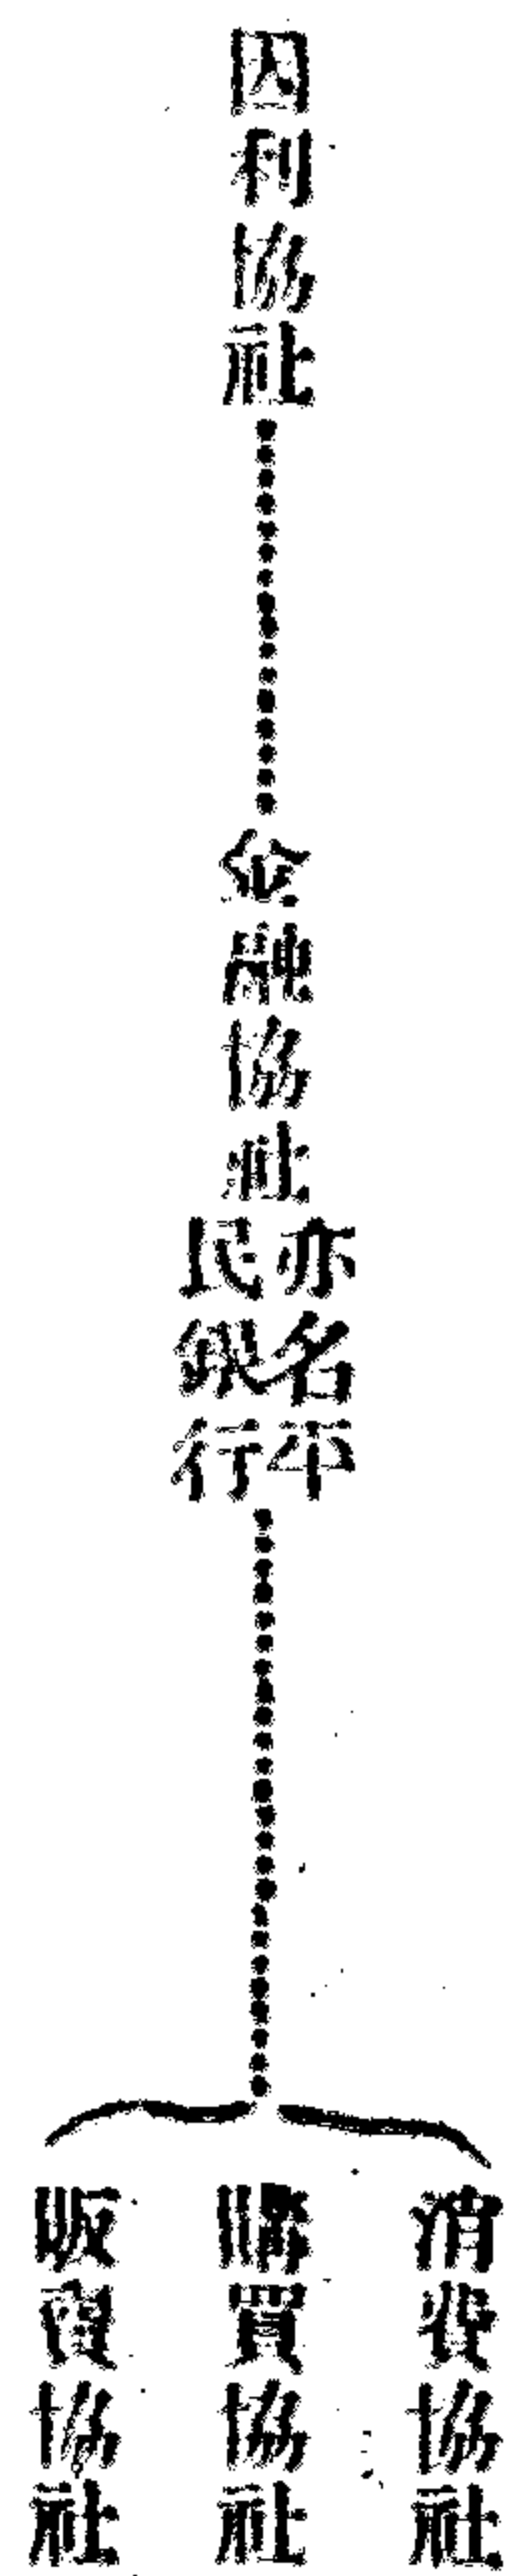 因利協社
金融協社
亦名平
民銀行
消費協社
購買協社
販賣協社